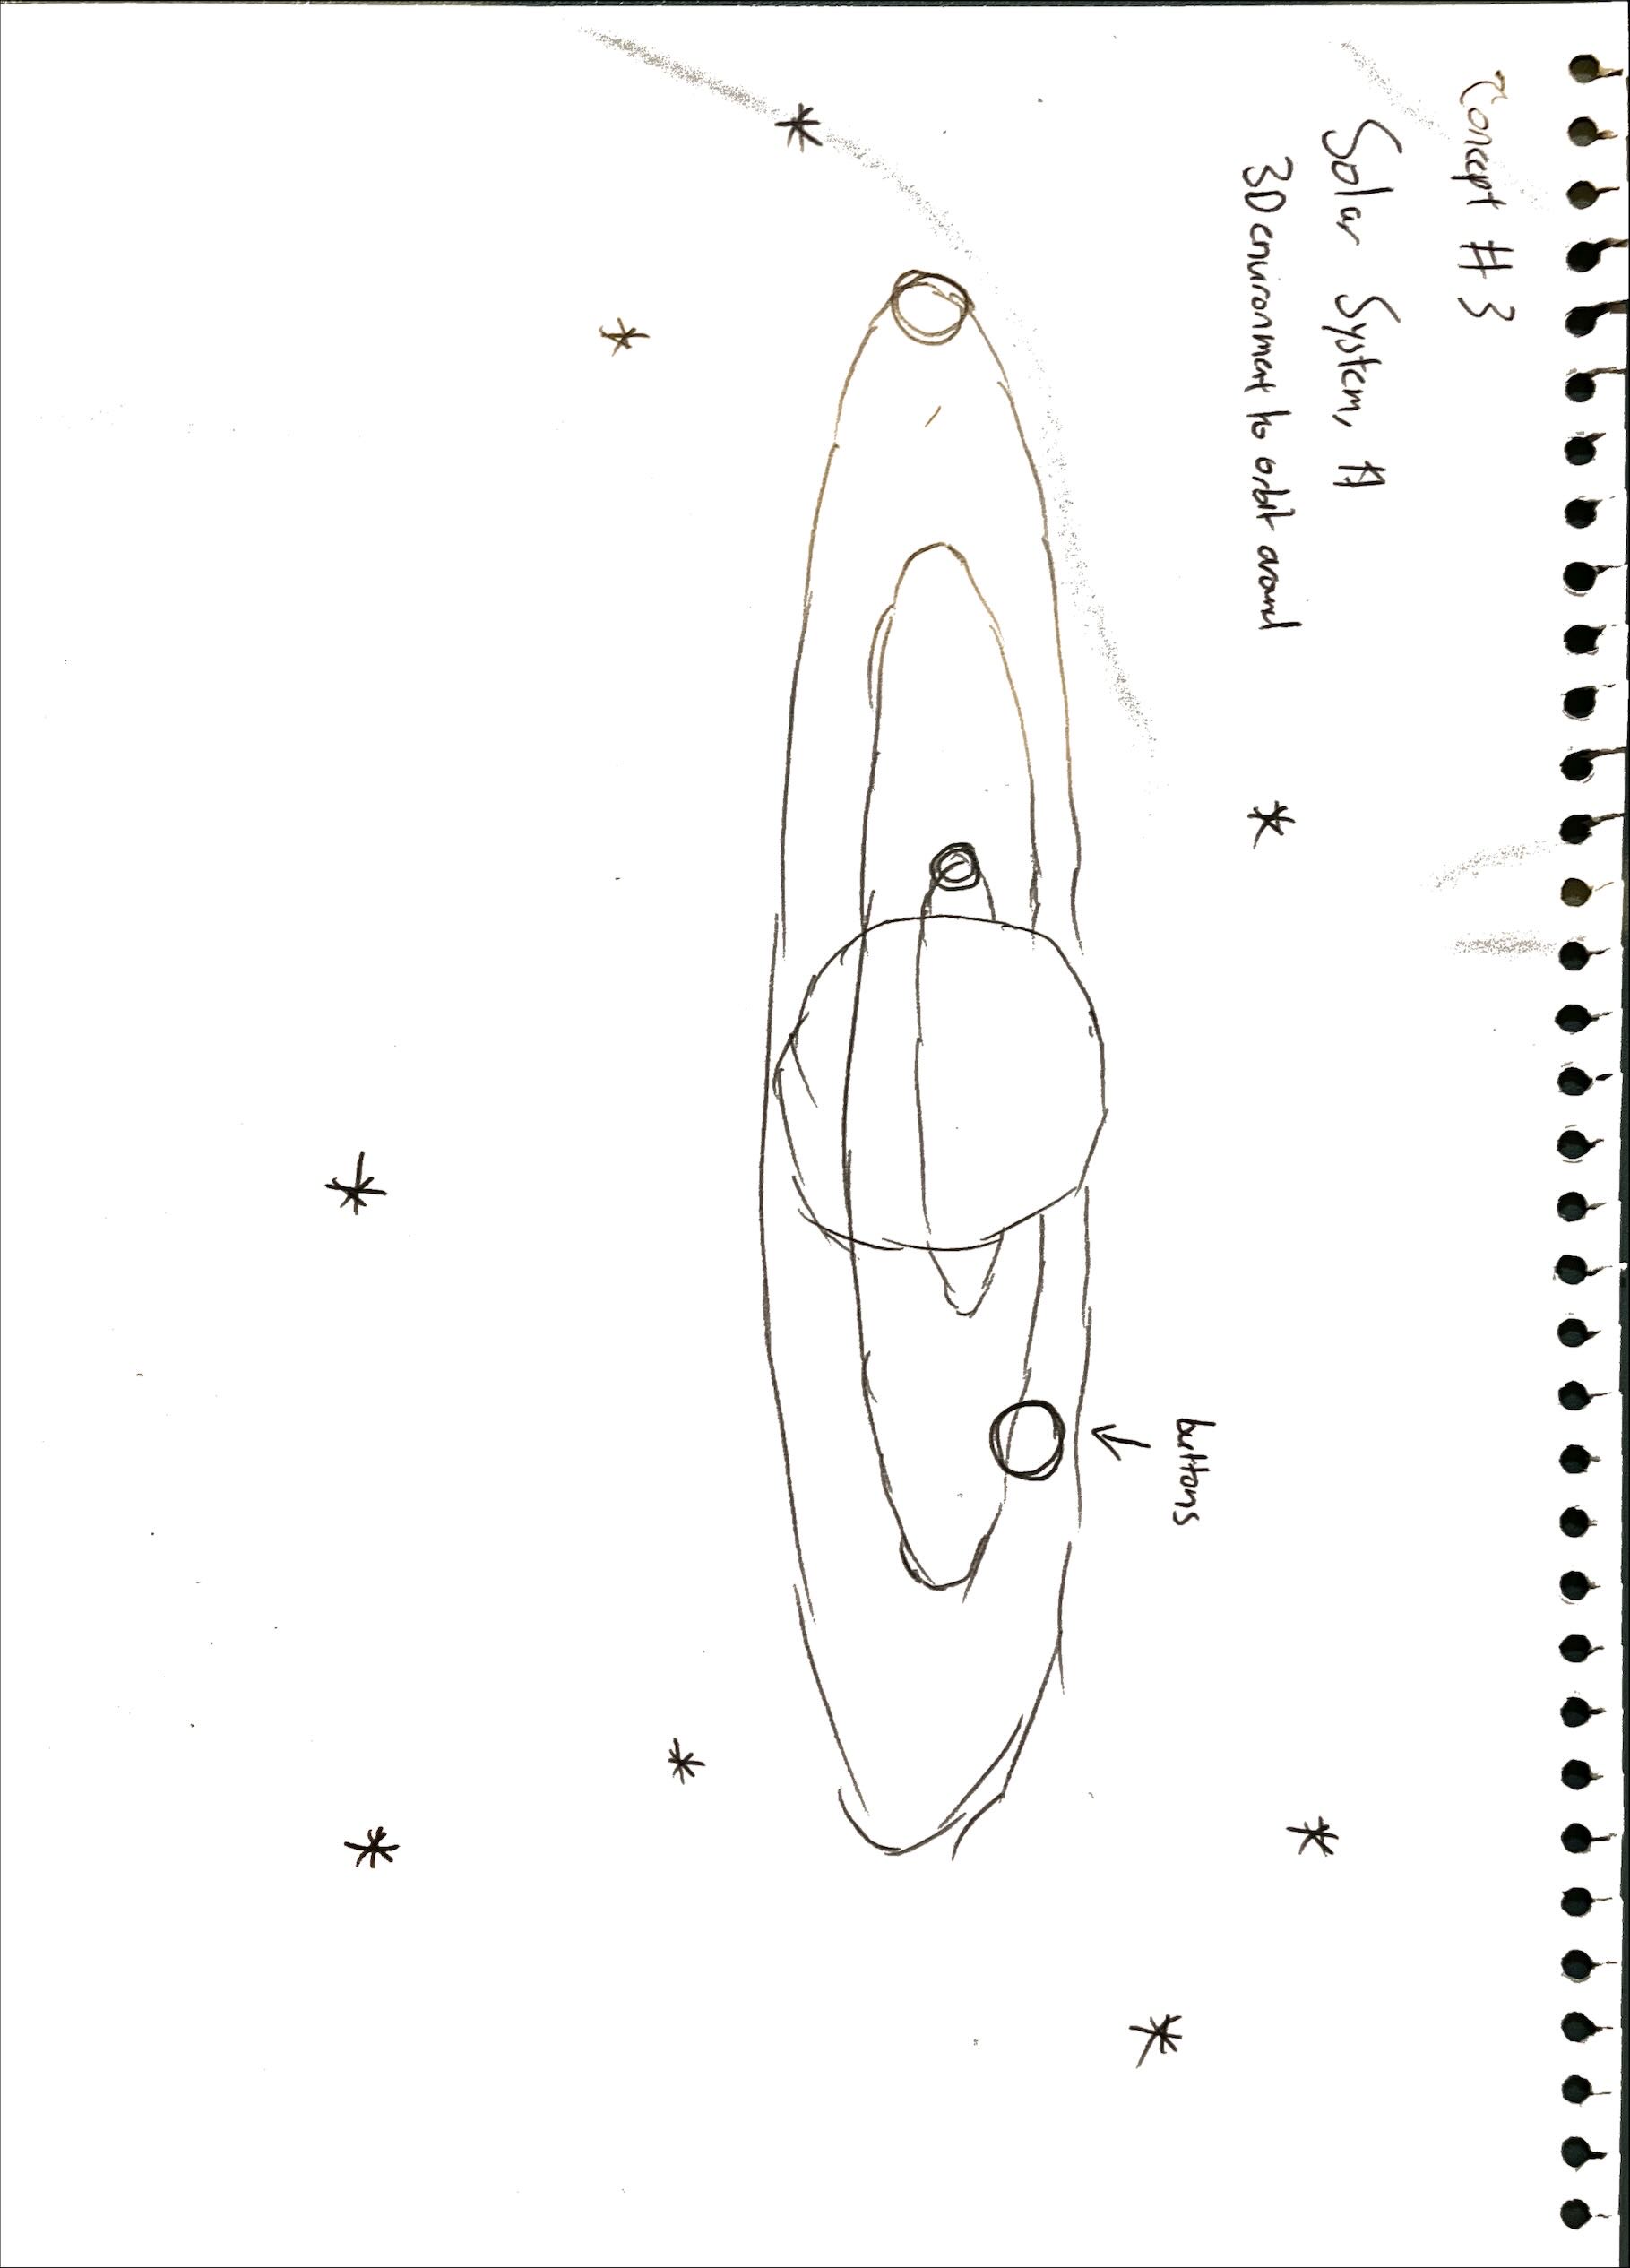 Concept # 3
Solar System, A
3D environment to orbit around
buttons